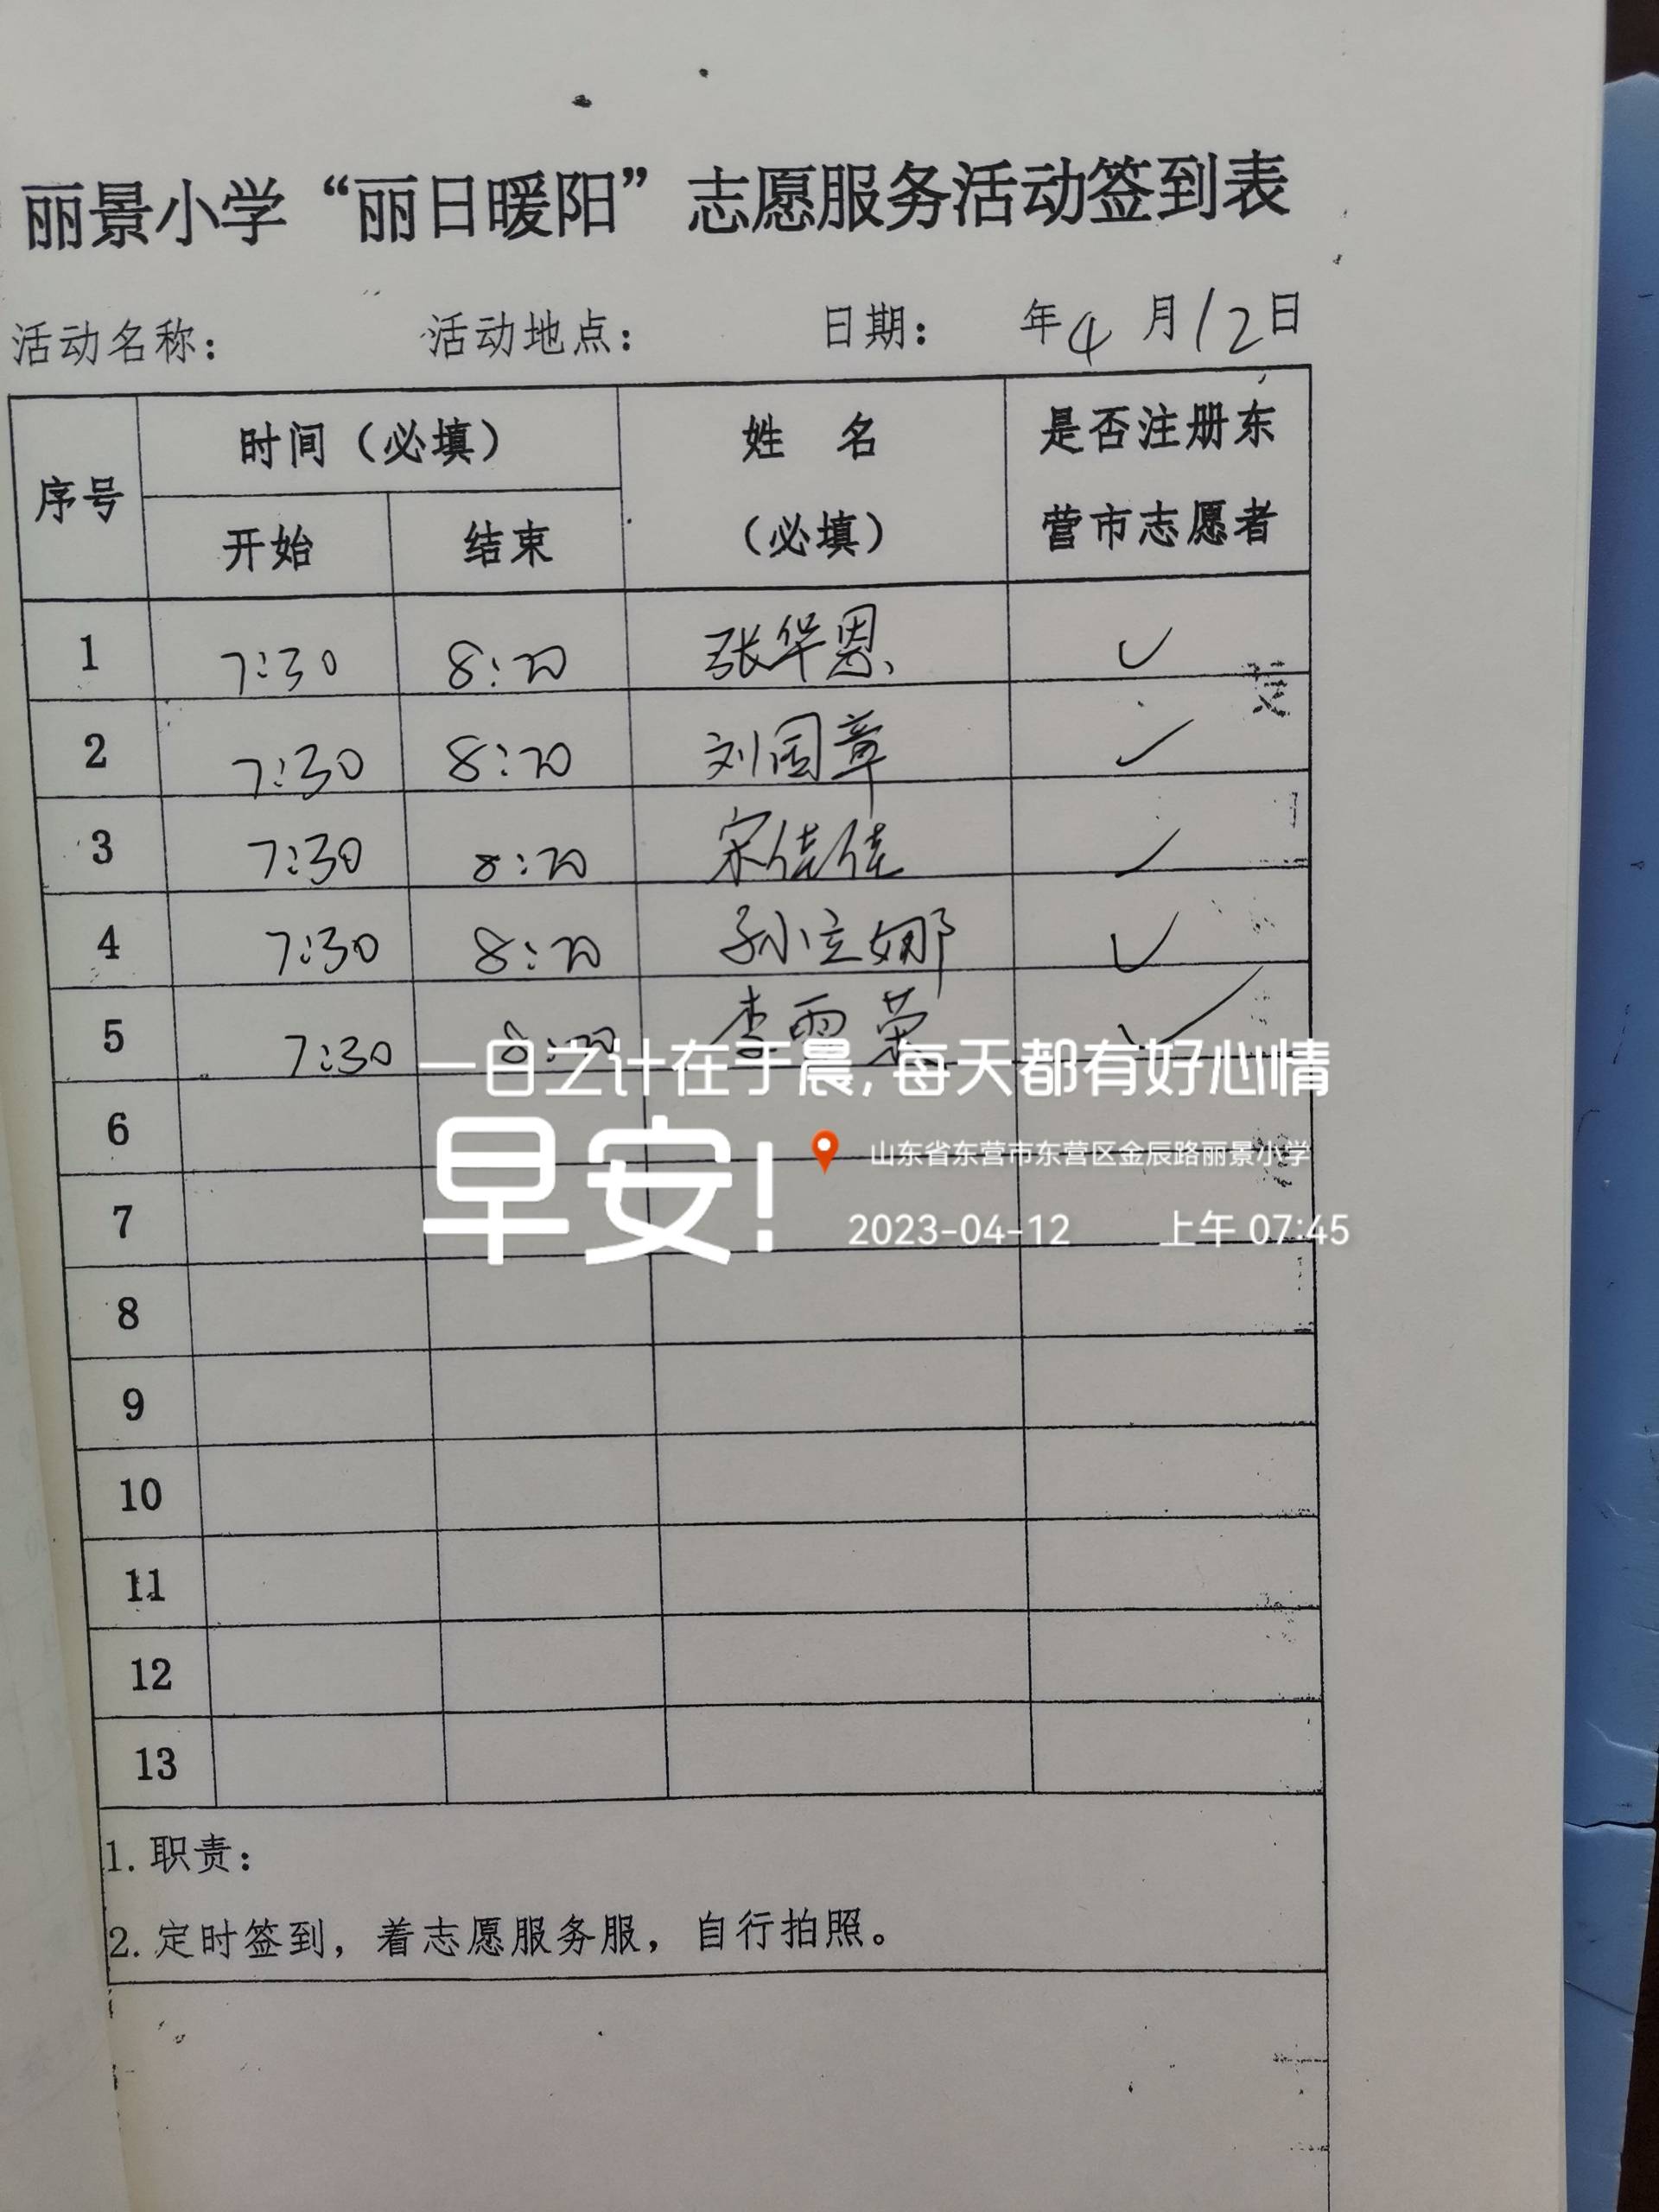 丽景小学“丽日暖阳”志愿服务活动签到表
活动名称： 活动地点： 日期： 年4月12日
序号 时间（必填） 姓 名（必填） 是否注册东营市志愿者
开始 结束
1 7:30 8:20 张华恩 ✓
2 7:30 8:20 刘国章 ✓
3 7:30 8:20 宋佳佳 ✓
4 7:30 8:20 孙立娜 ✓
5 7:30 8:20 李雪荣 ✓
一日之计在于晨,每天都有好心情
早安!
山东省东营市东营区金辰路丽景小学
2023-04-12 上午 07:45
6
7
8
9
10
11
12
13
1.职责：
2.定时签到，着志愿服务服，自行拍照。